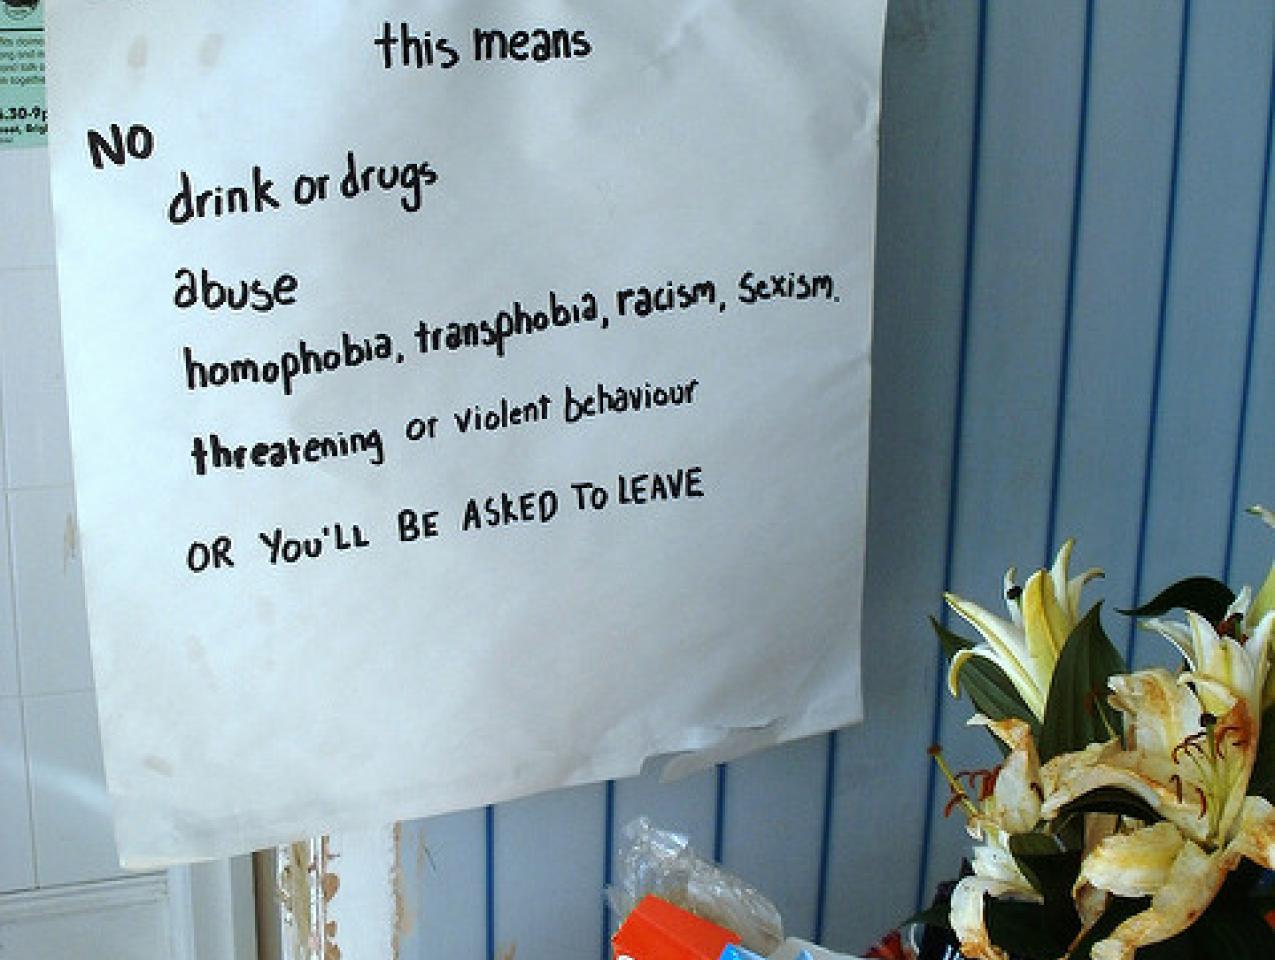 this means
NO
drink or drugs
abuse
homophobia, transphobia, racism, sexism.
threatening or violent behaviour
OR YOU'LL BE ASKED TO LEAVE
.30-9p